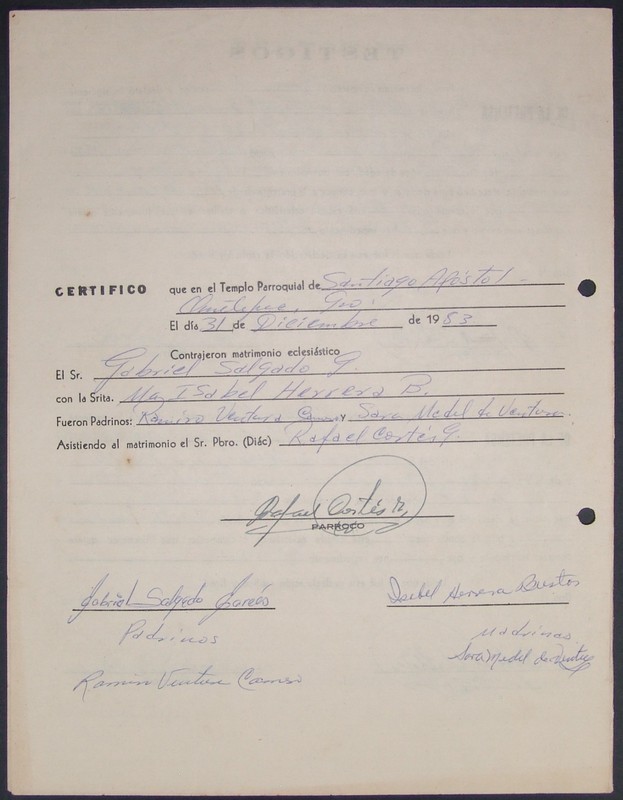 TESTIGOS
CERTIFICO que en el Templo Parroquial de Santiago Apóstol -
Gro.
El día 31 de Diciembre de 1983
Contrajeron matrimonio eclesiástico
El Sr. Gabriel Salgado G.
con la Srita. Ma. Isabel Herrera B.
Fueron Padrinos: Ramiro Ventura y Sara Medel de Ventura.
Asistiendo al matrimonio el Sr. Pbro. (Diác) Rafael Cortés G.
Rafael Cortés
PARROCO
Gabriel Salgado Isabel Herrera Bustos
Padrinos Madrinas
Sara Medel de
Ventura